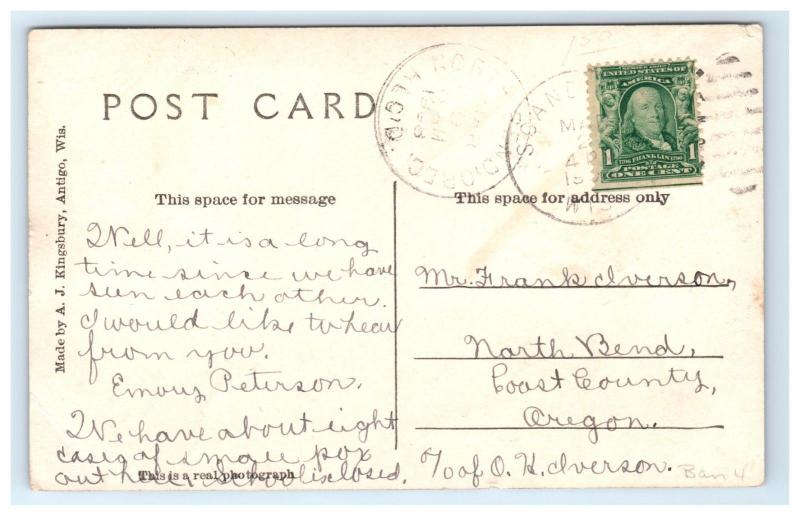 POST CARD
This space for message
This space for address only
Made by A. J. Kingsbury, Antigo, Wis.
Well, it is a long
time since we have
seen each other.
I would like to hear
from you.
Emory Peterson.
We have about eight
cases of small pox
out here. School is closed.
This is a real photograph
Mr. Frank Iverson,
North Bend,
Coost County,
Oregon.
℅ of O. H. Iverson.
Ban 4
150
NORTH BEND, OREG.
REC'D
SCAND
MA
WIS
SERIES 1902
UNITED STATES OF
AMERICA
1
1706 FRANKLIN 1790
1
POSTAGE
ONE CENT